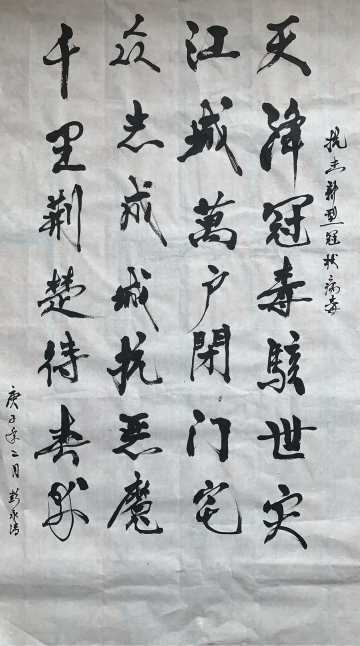 抗击新型冠状病毒
天降冠毒骇世灾
江城萬户閉门宅
众志成城抗恶魔
千里荆楚待春来
庚子年二月 彭永清